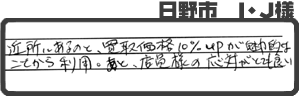 日野市 I・J様
近所にあるのと、買取価格10%upが魅力的な
ことから利用。あと、店員様の応対がとても良い